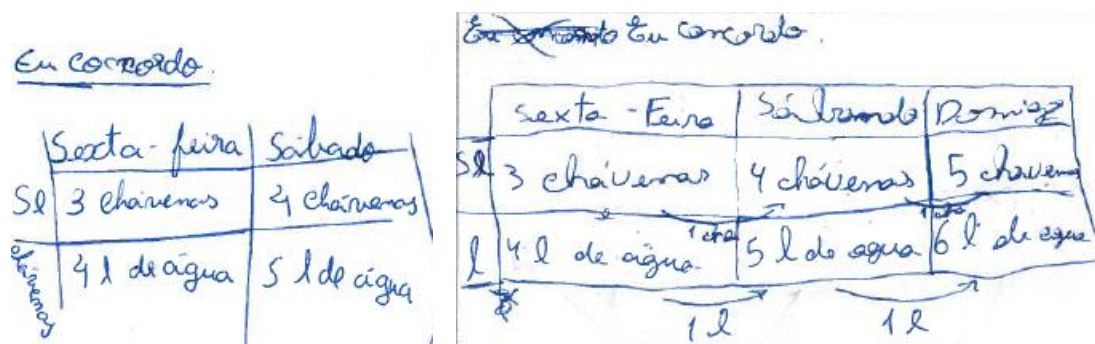 Eu concordo.
Sexta-feira Sábado
Sl 3 chávenas 4 chávenas
chávenas 4 l de água 5 l de água
Eu concordo.
Sexta-Feira Sábando Doming
Sl 3 chávenas 4 chávenas 5 chavena
1 cha
l 4 l de água 5 l de agua 6 l de agua
1 l 1 l